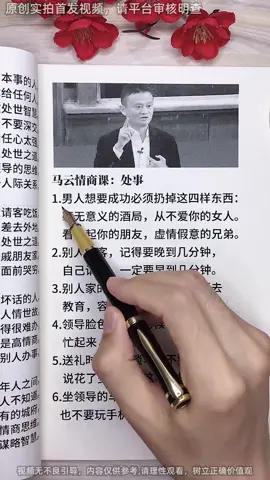 原创实拍首发视频，请平台审核明查
本事的人
给任何人
处世智慧
不要深交
任心太强
处世之道
领导的思
人际关系
请客吃饭
差去外地
处世之道
戚朋友家
面前哭穷
坏话的人
人情世故
得很难办
是高情商
别人办事
年人之间
人不知道
有的城府
情商思维
谋略智慧
马云情商课：处事
1.男人想要成功必须扔掉这四样东西：
无意义的酒局，从不爱你的女人。
看 起你的朋友，虚情假意的兄弟。
2.别人 客，记得要晚到几分钟，
自己 一定要早到几分钟。
3.别人家 去
教育，容
4.领导脸色
忙起来
5.送礼时 不
说花了
6.坐领导的
也不要玩手机
视频无不良引导，内容仅供参考，请理性观看，树立正确价值观